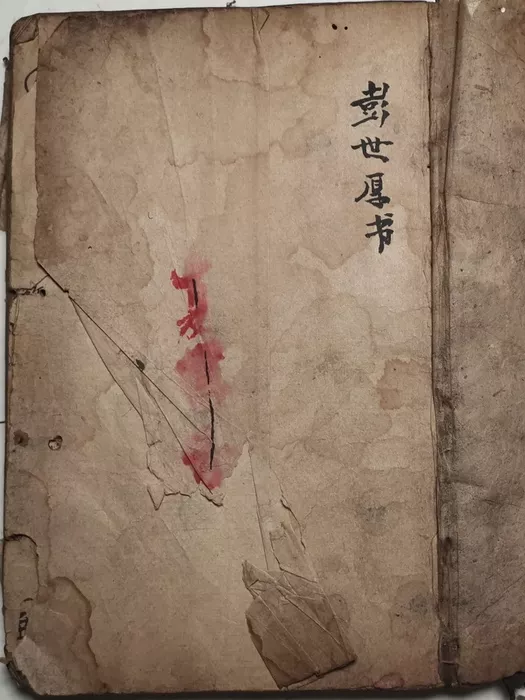 彭世厚书